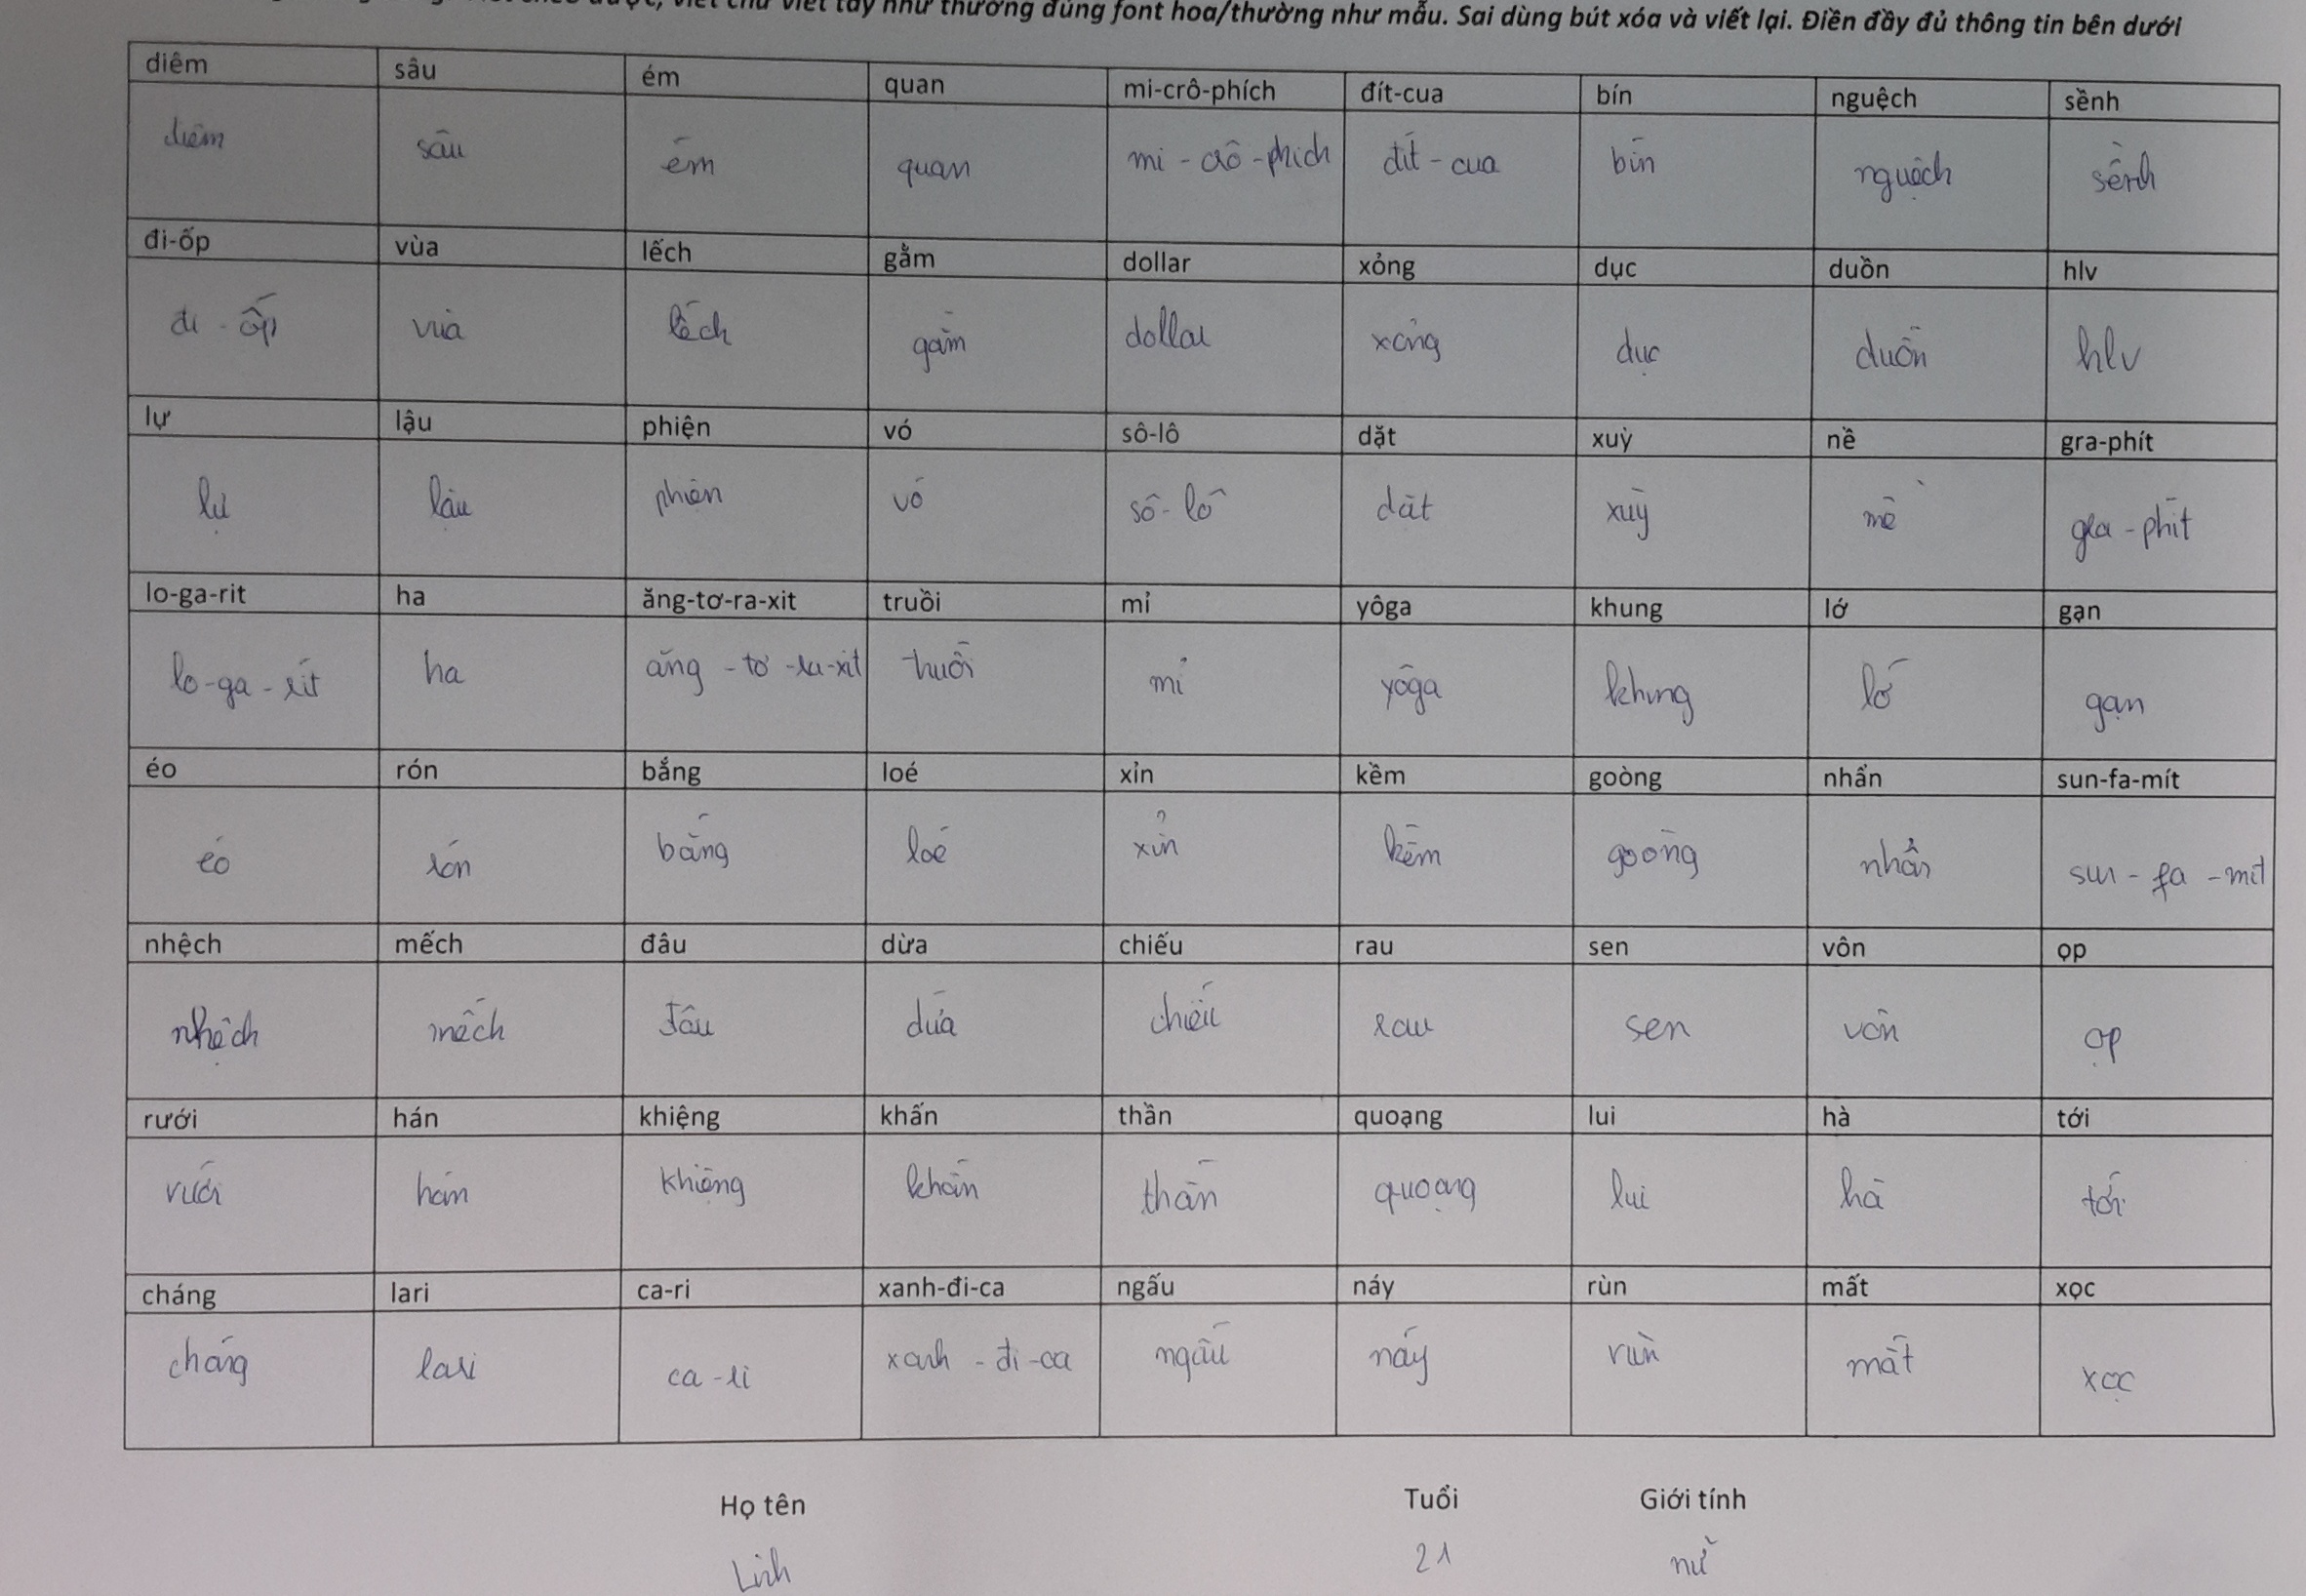 viết chữ viết tay như thường đúng font hoa/thường như mẫu. Sai dùng bút xóa và viết lại. Điền đầy đủ thông tin bên dưới
diêm sâu ém quan mi-crô-phích đít-cua bín nguệch sềnh
diêm sâu ém quan mi - crô - phích đít - cua bín nguệch sềnh
đi-ốp vùa lếch gằm dollar xỏng dục duồn hlv
đi - ốp vùa lếch gằm dollar xỏng dục duồn hlv
lự lậu phiện vó sô-lô dặt xuỳ nề gra-phít
lự lậu phiện vó sô - lô dặt xuỳ nề gra - phít
lo-ga-rit ha ăng-tơ-ra-xit truồi mỉ yôga khung lớ gạn
lo - ga - rit ha ăng - tơ - ra - xit truồi mỉ yôga khung lớ gạn
éo rón bắng loé xỉn kềm goòng nhẩn sun-fa-mít
éo rón bắng loé xỉn kềm goòng nhẩn sun - fa - mít
nhệch mếch đâu dừa chiếu rau sen vôn ọp
nhệch mếch đâu dừa chiếu rau sen vôn ọp
rưới hán khiệng khấn thần quoạng lui hà tới
rưới hán khiệng khấn thần quoạng lui hà tới
cháng lari ca-ri xanh-đi-ca ngấu náy rùn mất xọc
cháng lari ca - ri xanh - đi - ca ngấu náy rùn mất xọc
Họ tên Tuổi Giới tính
Linh 21 nữ